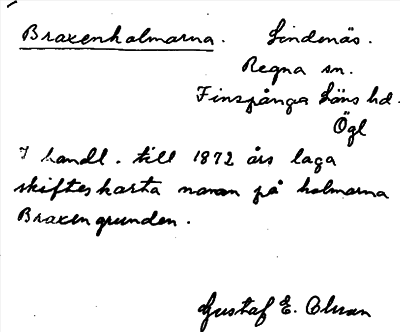 Braxenholmarna. Lindenäs.
Regna sn.
Finspånga Läns hd.
Ögl
I handl. till 1872 års laga
skifteskarta namn på holmarna
Braxengrunden.
Gustaf E. Olsson